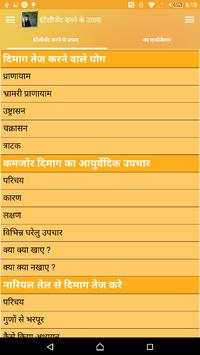 इंटेलीजेंट बनने के उपाय
इंटेलीजेंट बनने के उपाय
दिमाग तेज करने वाले योग
प्राणायाम
भ्रामरी प्राणायाम
उष्ट्रासन
चक्रासन
त्राटक
कमजोर दिमाग का आयुर्वेदिक उपचार
परिचय
कारण
लक्षण
विभिन्न घरेलु उपचार
क्या क्या खाए ?
क्या क्या नखाए ?
नारियल तेल से दिमाग तेज करे
परिचय
गुणों से भरपूर
कैसे किया अध्ययन